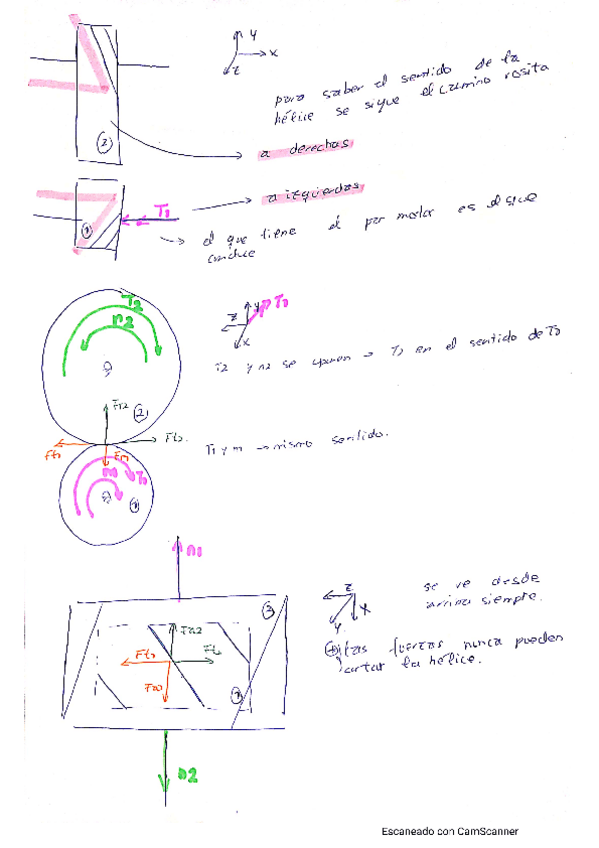 y
x
z
para saber el sentido de la
hélice se sigue el camino rosita
2
a derechas
a izquierdas
T1
1
el que tiene el par motor es el que
conduce
T2
n2
y T1
z
x
T2 y n2 se oponen → T2 en el sentido de
Fr2
2
Ft1
Ft2
Fr1
T1 y n1 → mismo sentido.
n1
T1
1
n1
z
x
y
se ve desde
arriba siempre.
2
Fa2
Ft1
1
las fuerzas nunca pueden
cortar la hélice.
n2
Escaneado con CamScanner